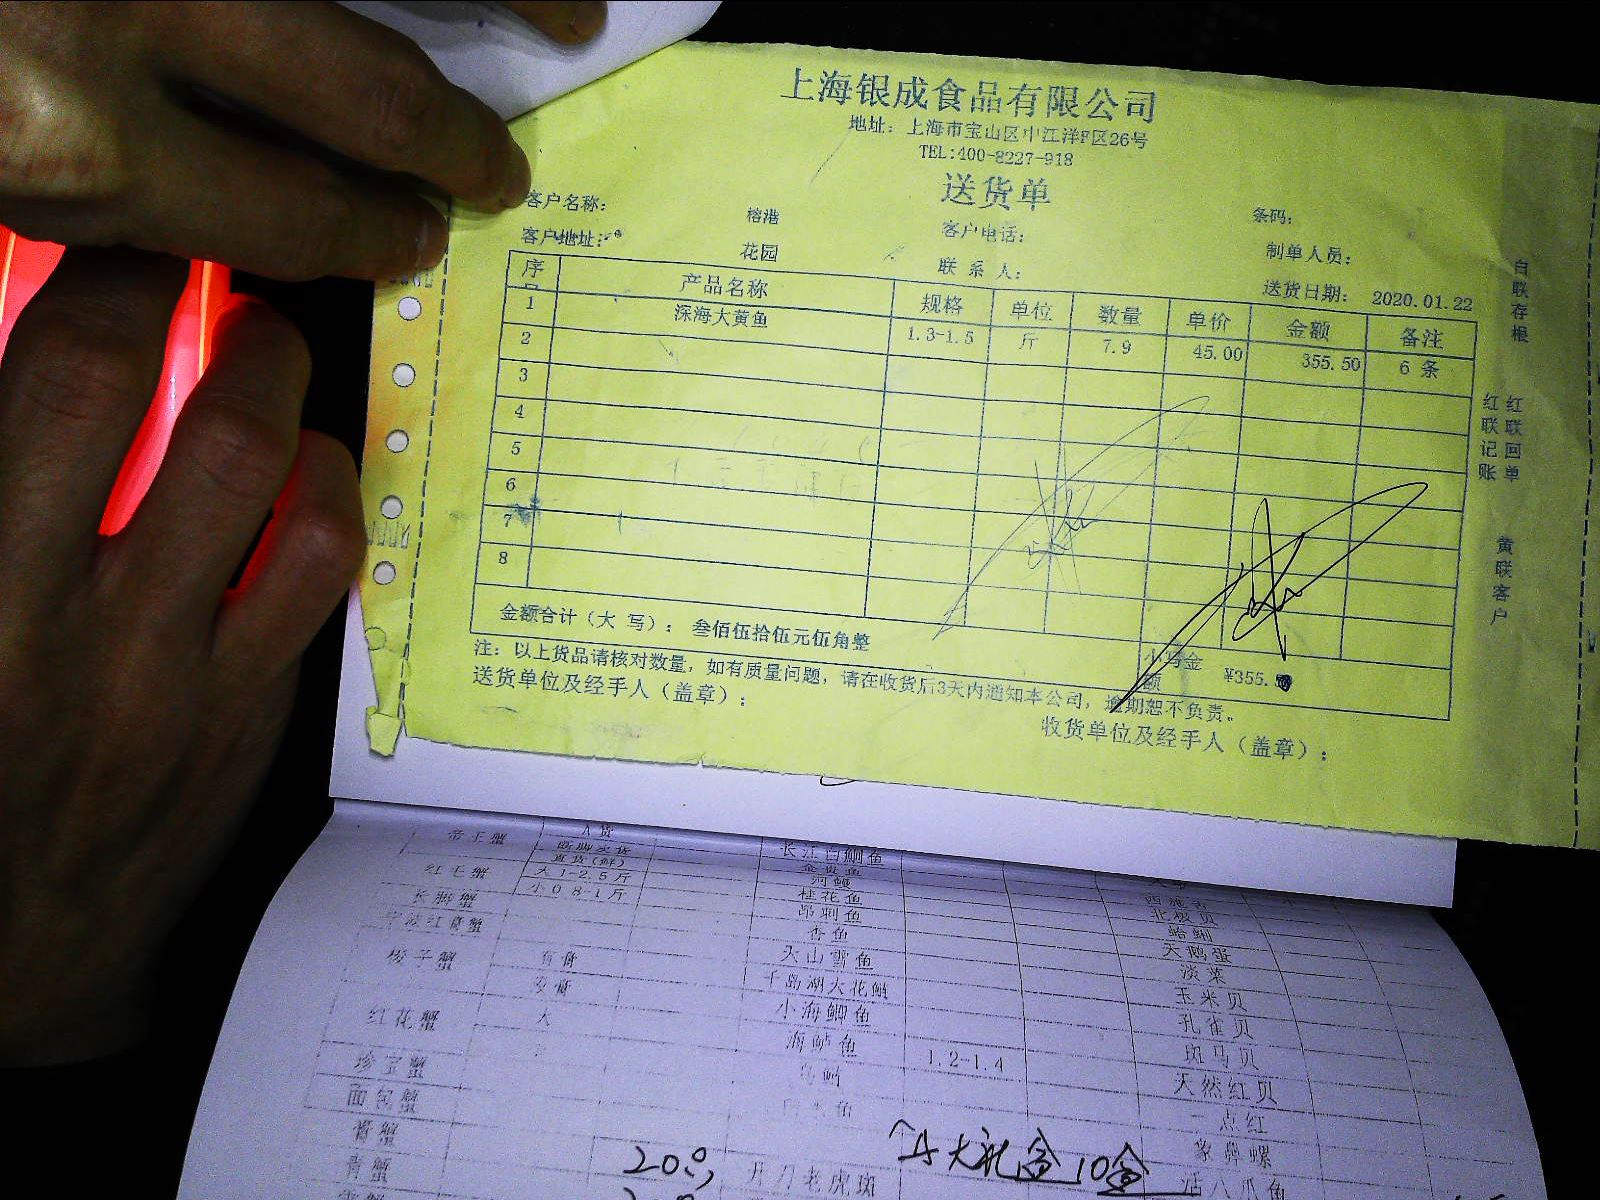 上海银成食品有限公司
地址：上海市宝山区中江洋F区26号
TEL:400-8227-918
送货单
客户名称： 榕港 客户电话： 条码：
客户地址： 花园 联 系 人： 制单人员：
送货日期： 2020.01.22
序 产品名称 规格 单位 数量 单价 金额 备注
1 深海大黄鱼 1.3-1.5 斤 7.9 45.00 355.50 6 条
2
3
4
5
6
7
8
金额合计（大 写）： 叁佰伍拾伍元伍角整 小写金额 ¥355.
注：以上货品请核对数量，如有质量问题，请在收货后3天内通知本公司，逾期恕不负责。
送货单位及经手人（盖章）： 收货单位及经手人（盖章）：
白联存根
红联记账
红联回单
黄联客户
帝王蟹 长江白鮰鱼
红毛蟹 大1-2.5斤
小0.8-1斤 桂花鱼
长脚蟹 昂刺鱼 北极贝
宁波红膏蟹 香鱼 蛤蜊
梭子蟹 有膏 天山雪鱼 天鹅蛋
千岛湖大花鲢 淡菜
小海鲫鱼 玉米贝
红花蟹 大 海鲈鱼 孔雀贝
珍宝蟹 1.2-1.4 斑马贝
面包蟹 天然红贝
膏蟹 一点红
青蟹 象鼻螺
老虎斑 活八爪鱼
大礼盒10盒